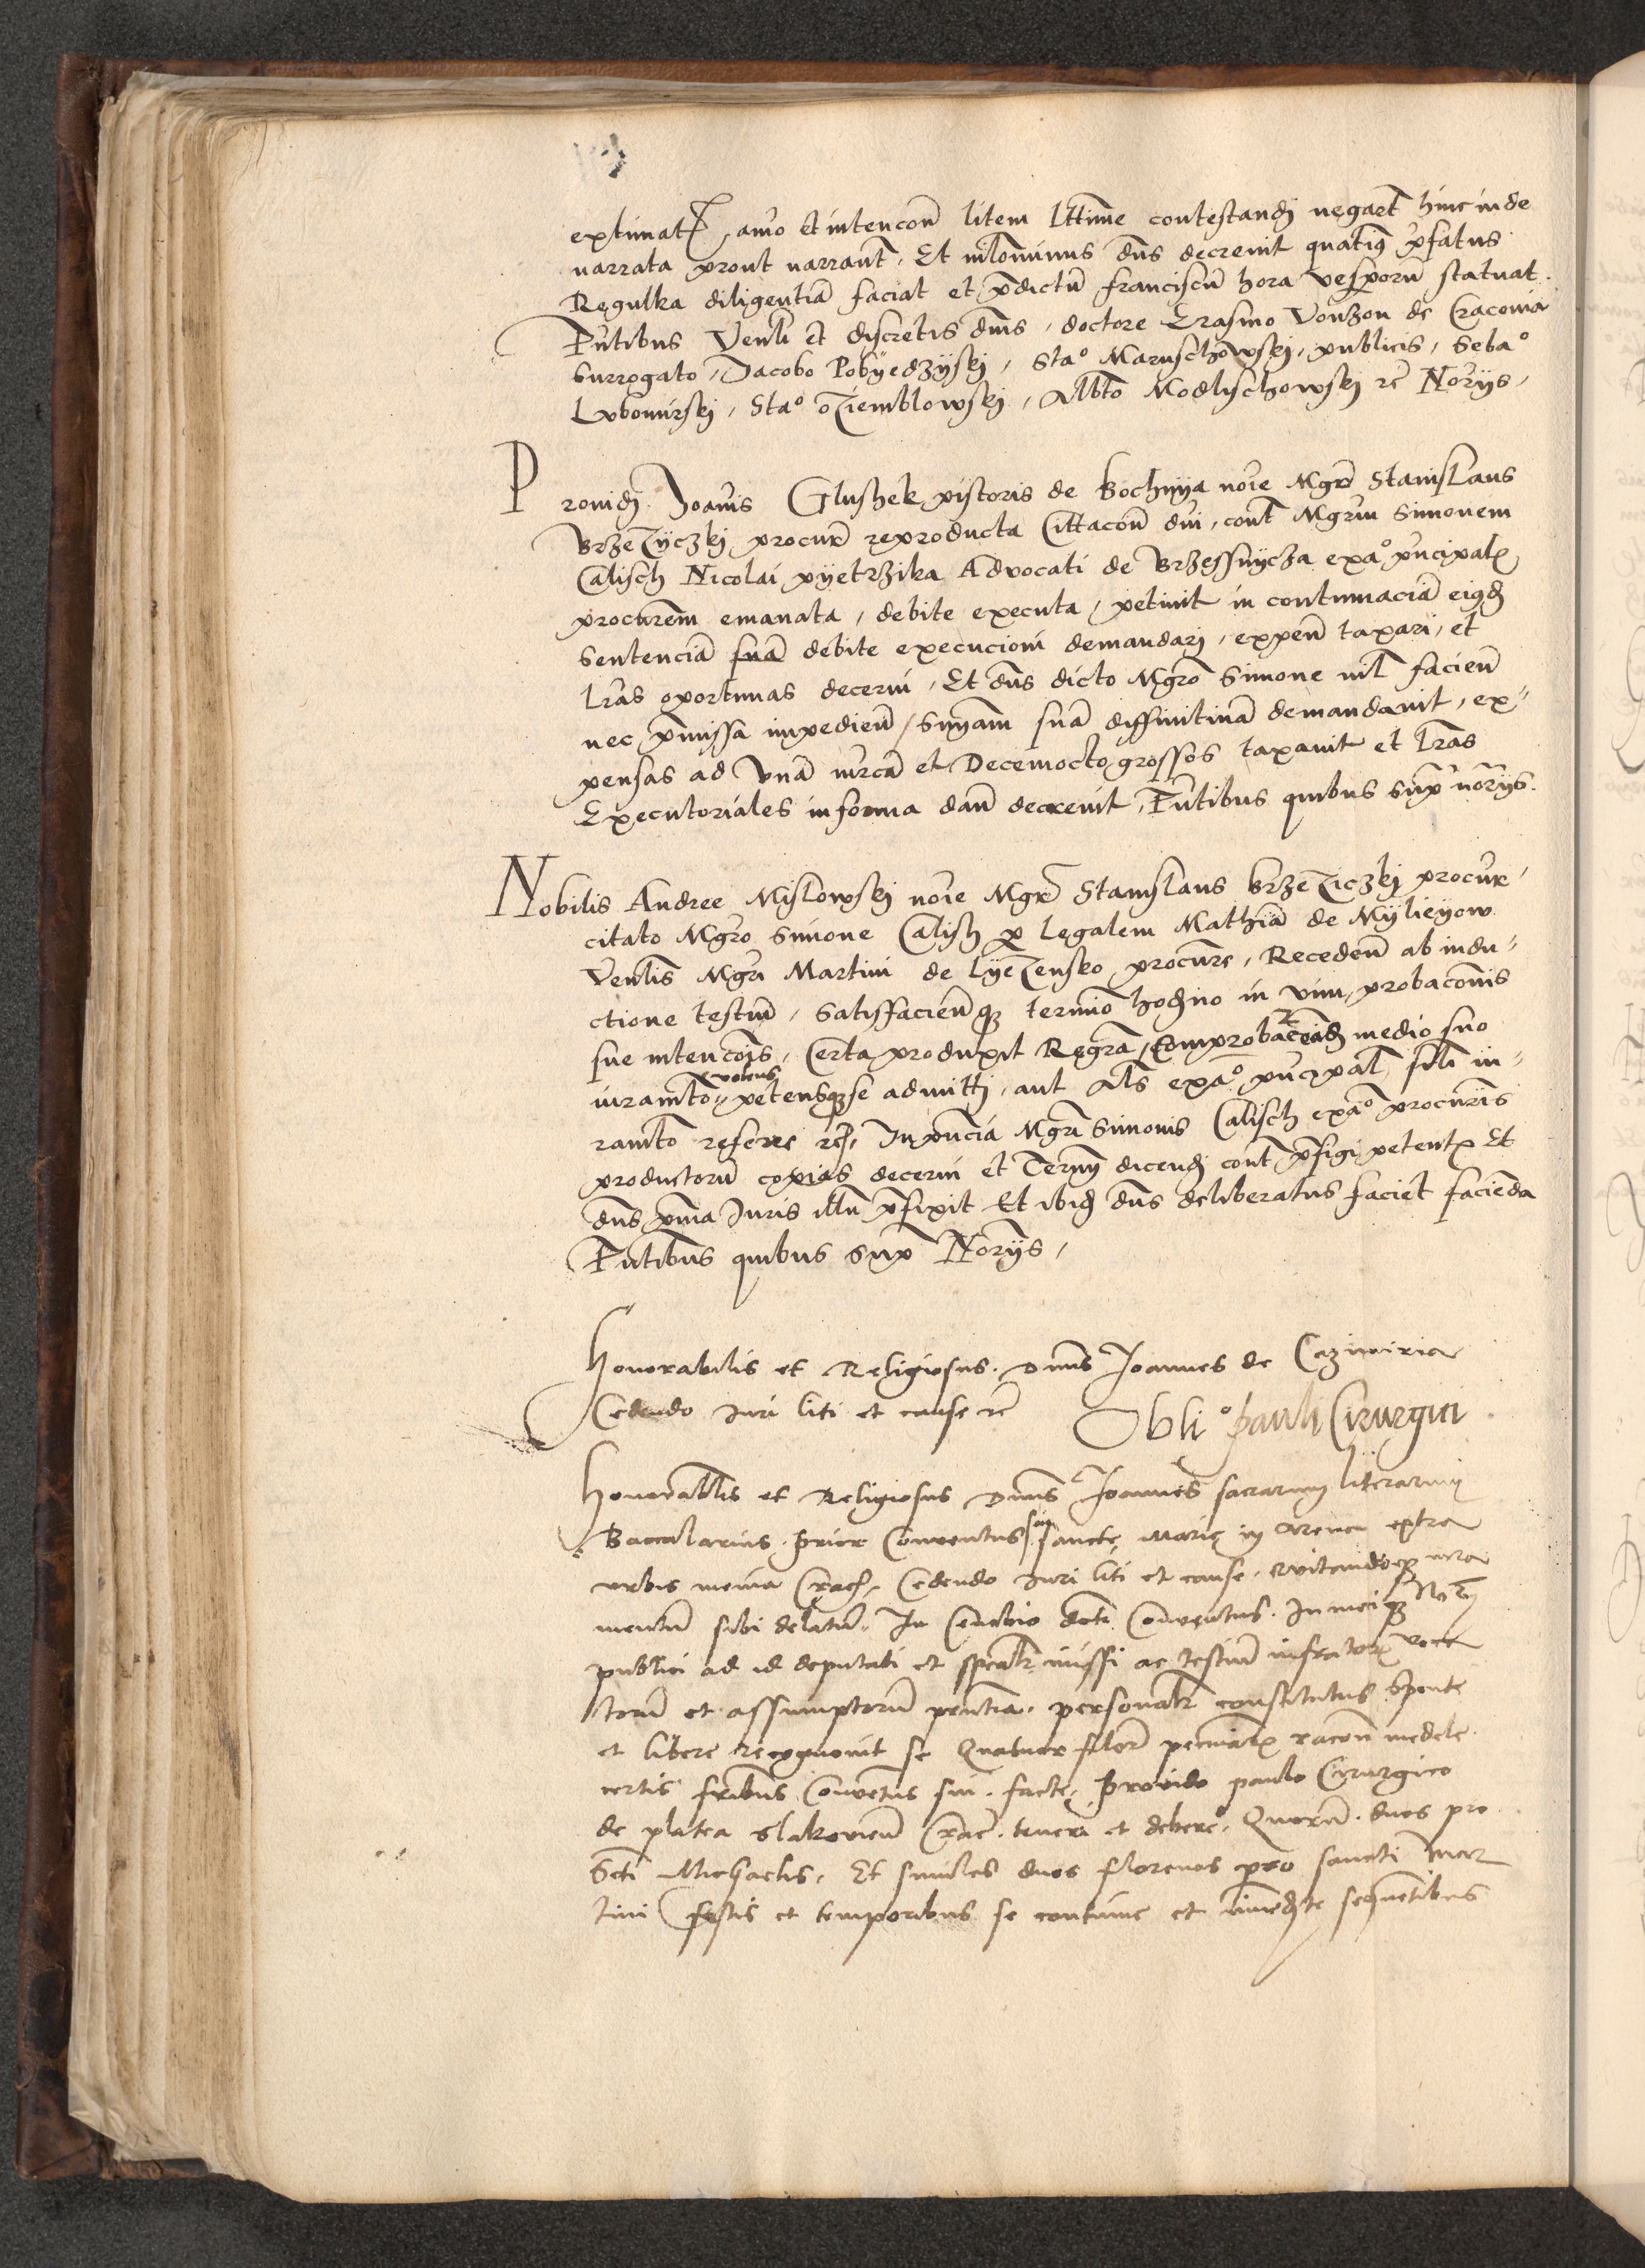 extimatꝝ, a͞io et intenco͞n litem l͞ttime contestandj negar͞t hinc inde
narrata prout narran͞t, Et ni͞lominus d͞ns decrevit quatinꝰ p͞fatus
Regulka diligentiā faciat et p͞dictū franciscū hora vesꝑorū statuat.
P͞ntibus Ven͞li et discretis d͞nis, doctore Erasmo Vonzon de Cracouia
Surrogato, Jacobo Pobyedzyskj, Sta° Maruschowskj, publicis, Seba°
Lvbomirskj, Sta° Ziemblowskj, Alb͞to Modlischowskj ꝛc̄ No͞rijs,
Prouidj Joan͞is Glushek pistoris de Bochnya no͞ie Mg͞r Stanislaus
Brzezyczkj procur͞ reproducta Cittaco͞n d͞ni, con͞t Mg͞rm Simonem
Calisch Nicolai pyetrzika Advocati de Brzessnycza ex a° p͞ncipalꝭ
procur͞em emanata, debite executa, petiuit in contumaciā eiꝰdē
Sentenciā suā debite execucioni demandarj, expen͞ taxari, et
l͞ras oportunas decerni, Et d͞ns dicto Mg͞ro Simone ni͞l facien͞
nec p͞missa impedien͞, S͞niam suā diffinitiuā demandauit, ex"
pensas ad vnā m͞rcā et Decemocto grossos taxauit et l͞ras
Executoriales in forma dan͞ decreuit, P͞ntibus quibus sup͞ no͞rijs.
Nobilis Andree Mislowskj no͞ie Mg͞r Stanislaus Brzeziczkj procur͞,
citato Mg͞ro Simone Calish ꝑ legalem Mathiā de Mylieyow
Ven͞lis Mg͞ri Martini de Lyczensko procur͞e, Receden͞ ab indu"
ctione testiū, Satisfacien͞qꝫ termīo hodi͞no in vim probaco͞nis
sue intenco͞is, Certa produxit Reg͞ra, medio suo
iura͞mto volens petensqꝫ se admittj, aut a͞ls ex a° p͞ncipal͞ s͞ili iu"
ra͞mto referre ꝛc̄, In p͞ncia Mg͞ri Simonis Calisch ex a° procur͞is
productorū copias decerni et Termī dicendj con͞t p͞figi petentꝭ Et
d͞ns p͞ma Juris illū p͞fixit Et ibid͞ d͞ns deliberatus faciet facienda
P͞ntibus quibus sup͞ No͞rijs,
Honorabilis et Religiosus. D͞nus Joannes de Cazimiria
Cedendo Juri liti et cause ꝛc̄ Obli° Pauli Cirurgici
Honorab͞lis et Religiosus D͞nus Joannes sacrarum literarum
Baccalarius. Prior Conventus sancte Marie in Arena extra
vrbis menia Crac͞. Cedendo Juri liti et cause. iura
mentū sibi delatū. In Cenobio d͞cti Conventus. In meiqꝫ No͞rij
publici ad id deputati et sp͞ealr missi ac testiū infra voca
torū et assumptorū p͞ntia. personalr͞ constitutus sponte
et libere recognovit se Quatuor flor͞ pecuniarꝝ raco͞n medele
certis fr͞ibus Conve͞tus sui. facte, Provido paulo Cirurgico
de platea slakovien͞ Crac͞. teneri et debere. Quorū. duos pro
S͞cti Michaelis. Et similes duos florenos pro sancti Mar
tini festis et temporibus se continue et im͞ediate seque͞tibus